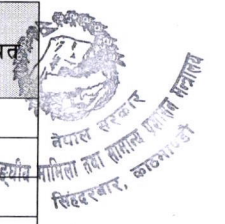 यत
नेपाल सरकार
ङ्घीय मामिला तथा सामान्य प्रशासन मन्त्रालय
सिंहदरबार, काठमाण्डौ